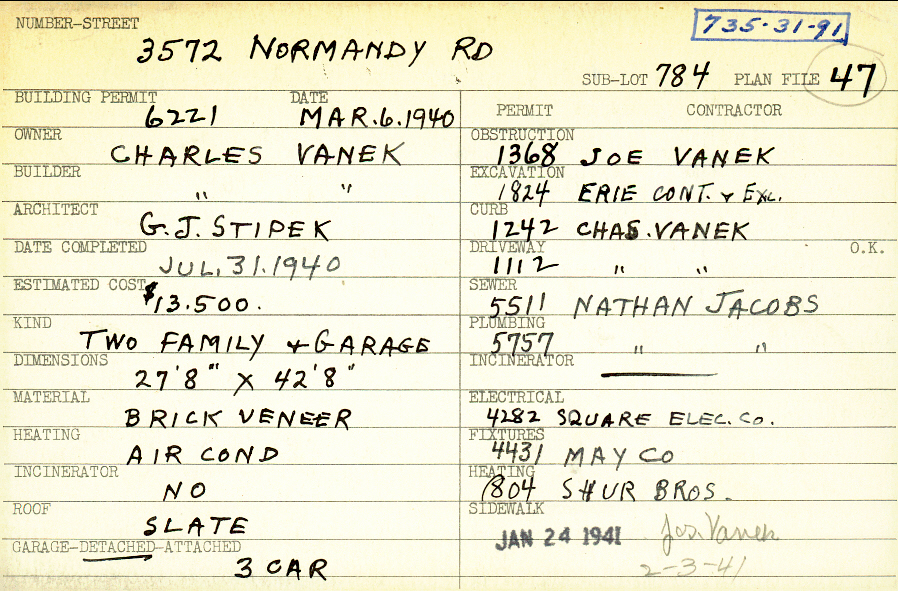 NUMBER-STREET
735-31-91
3572 NORMANDY RD
SUB-LOT 784 PLAN FILE 47
BUILDING PERMIT DATE
6221 MAR.6.1940
OWNER
CHARLES VANEK
BUILDER
" "
ARCHITECT
G.J.STIPEK
DATE COMPLETED
JUL.31.1940
ESTIMATED COST
$13.500.
KIND
TWO FAMILY & GARAGE
DIMENSIONS
27'8" X 42'8"
MATERIAL
BRICK VENEER
HEATING
AIR COND
INCINERATOR
NO
ROOF
SLATE
GARAGE-DETACHED-ATTACHED
3 CAR
PERMIT CONTRACTOR
OBSTRUCTION
1368 JOE VANEK
EXCAVATION
1824 ERIE CONT. & EXC.
CURB
1242 CHAS.VANEK
DRIVEWAY O.K.
1112 " "
SEWER
5511 NATHAN JACOBS
PLUMBING
5757 " "
INCINERATOR
ELECTRICAL
4282 SQUARE ELEC.CO.
FIXTURES
4431 MAY CO
HEATING
1804 SHUR BROS.
SIDEWALK
JAN 24 1941 Jos. Vanek
2-3-41